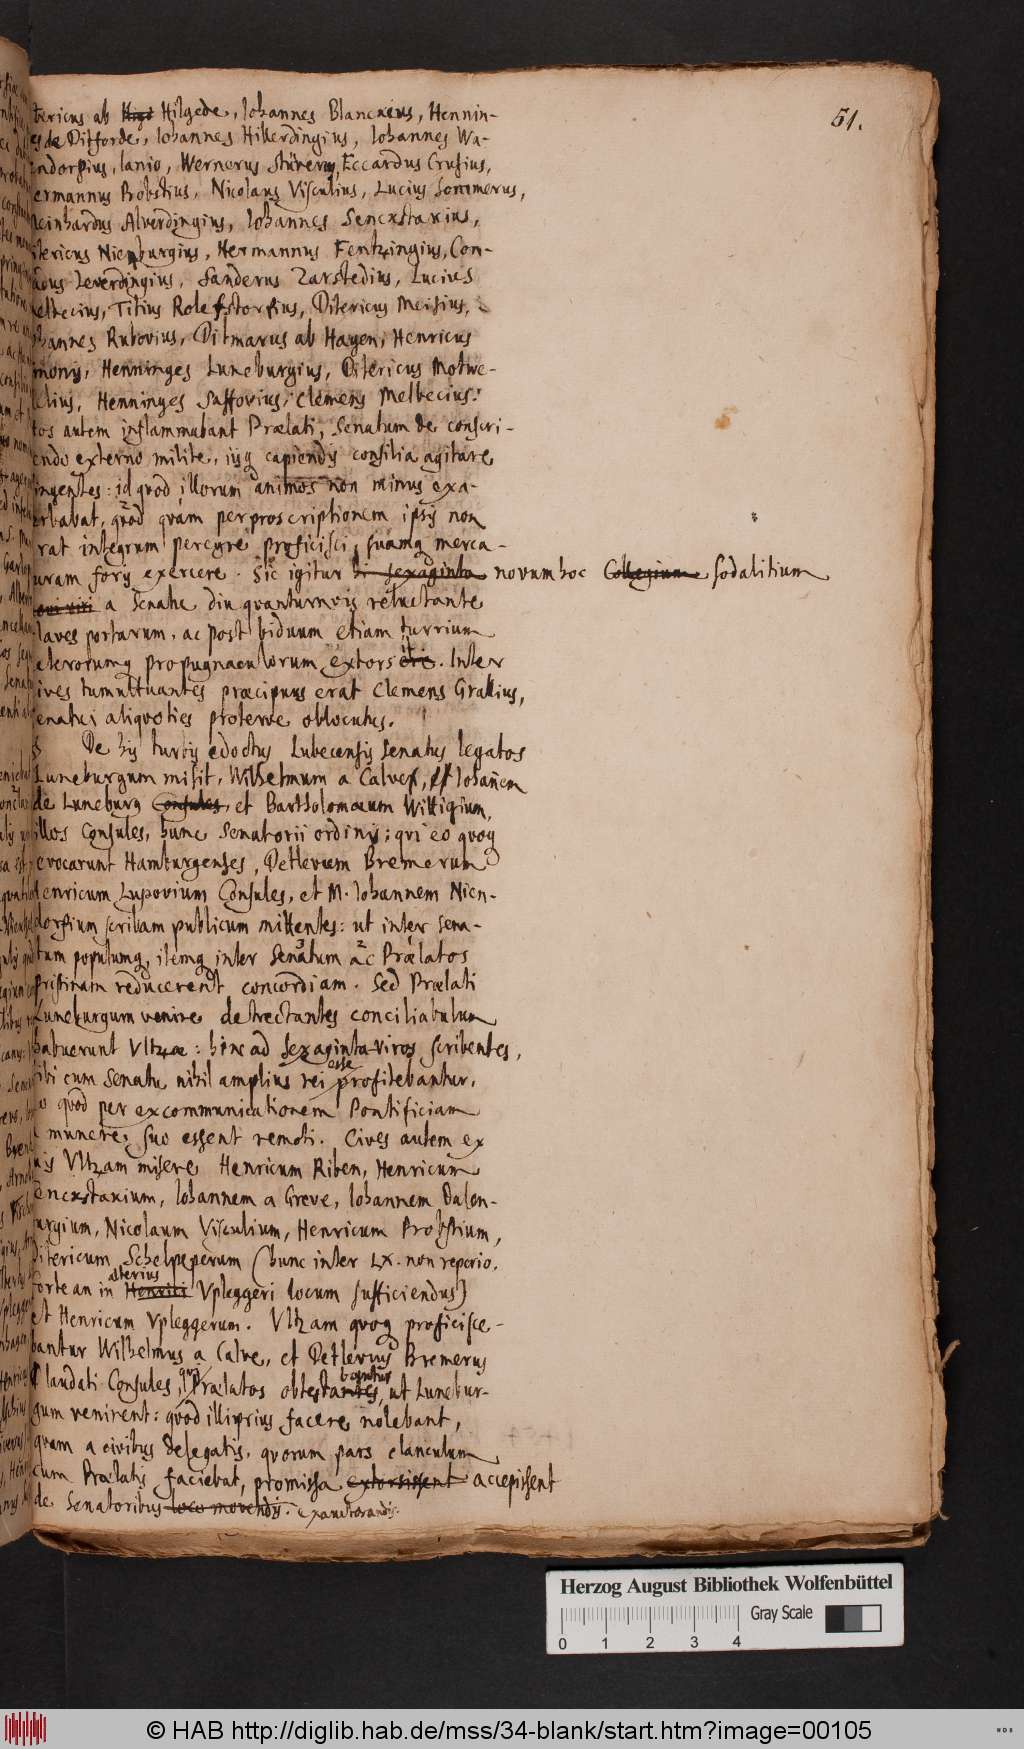 51.
tericus ab Higi Hilgede, Iohannes Blancxeius, Hennin-
es de Difforde, Iohannes Hillerdingius, Iohannes Wa-
ndorpius, lanio, Wernerus Stüverus, Eccardus Crusius,
ermannus Probstius, Nicolaus Visculius, Lucius Sommerus,
Reinhardus Alverdingius, Iohannes Sencxstaxius,
itericus Nienburgius, Hermannus Fentzingius, Con-
adus Leverdingius, Sanderus Zarstedius, Lucius
elbecius, Titius Rolefstorfius, Ditericus Meisius,
ohannes Rubovius, Ditmarus ab Hagen, Henricus
monis, Henninges Luneburgius, Ditericus Motwe-
elius, Henninges Sassovius, Clemens Melbecius.
tos autem inflammabant Prælati, Senatum de conscri-
endo externo milite, iisq capiendis consilia agitare
ingentes: id quod illorum animos non minus exa-
erbabat, quod quam per proscriptionem ipsis non
rat integrum peregre proficisci, suamq merca-
uram foris exercere. Sic igitur hi sexaginta novum hoc Collegium sodalitium
novi viri a Senatu diu quantumvis reluctante
laves portarum, ac post biduum etiam turrium
eterorumq propugnaculorum extorsere. Inter
ives tumultuantes præcipuus erat Clemens Grallius,
enatui aliquoties proterve oblocutus.
De his turbis edoctus Lubecensis Senatus legatos
Luneburgum misit, Wilhelmum a Calven, Iohañem
de Luneburg Consules, et Bartholomæum Wittigium,
illos Consules, hunc Senatorii ordinis: qui eo quoq
evocarunt Hamburgenses, Detlevum Bremerum
Henricum Lupovium Consules, et M. Iohannem Nien-
dorfium scribam publicum mittentes: ut inter Sena-
tum populumq, itemq inter Senatum ac Prælatos
Pristinam reducerent concordiam. Sed Prælati
Luneburgum venire detrectantes conciliabulum
habuerunt Vltzæ: hinc ad Sexaginta-viros scribentes,
sibi cum Senatu nihil amplius rei esse profitebantur,
eo quod per excommunicationem Pontificiam
a munere suo essent remoti. Cives autem ex
uis Vltzam misere Henricum Riben, Henricum
encxstaxium, Iohannem a Greve, Iohannem Dalen-
urgium, Nicolaum Visculium, Henricum Probstium,
Ditericum Schelpeperum (hunc inter LX. non reperio.
forte an in Henrici alterius Vpleggeri locum sufficiendus)
et Henricum Vpleggerum. Vltzam quoq proficisce-
bantur Wilhelmus a Calve, et Detlevus Bremerus
laudati Consules, qui Prælatos obtestantes bantur, ut Lunebur-
gum venirent: quod illi prius facere nolebant,
quam a civibus delegatis, quorum pars clanculum
cum Prælatis faciebat, promissa extorsissent accepissent
de Senatoribus loco movendis. exauctorandis.
Herzog August Bibliothek Wolfenbüttel
Gray Scale
0 1 2 3 4
© HAB http://diglib.hab.de/mss/34-blank/start.htm?image=00105